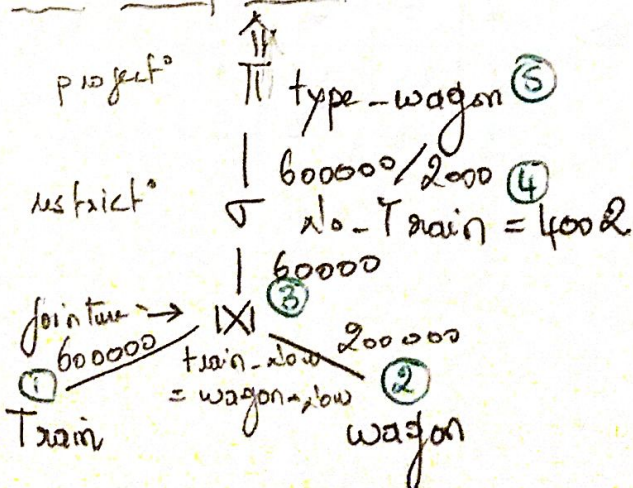 project°
π type-wagon ⑤
600000/2000 ④
restrict°
σ No-Train = 4002
60000
jointure → |X| ③
600000
200000
train.Now
= wagon.Now
① Train
② wagon